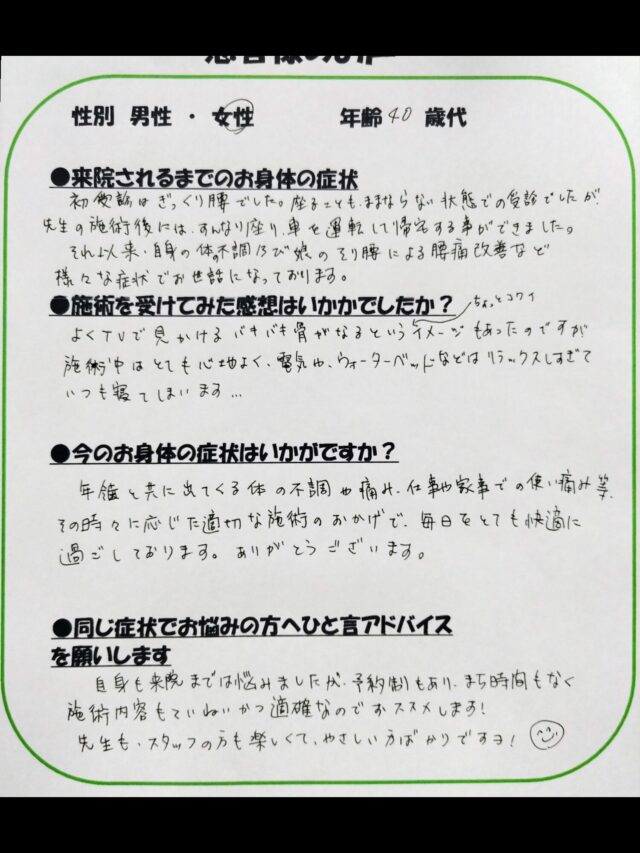 患者様の声
性別 男性 ・ 女性 年齢 40 歳代
●来院されるまでのお身体の症状
初受診はぎっくり腰でした。座ることも、ままならない状態での受診でしたが、
先生の施術後には、すんなり座り、車を運転して帰宅する事ができました。
それ以来、自身の体の不調及び娘のそり腰による腰痛改善など
様々な症状でお世話になっております。
●施術を受けてみた感想はいかかでしたか?
ちょっとコワイ
よくTVで見かける バキバキ骨がなるというイメージもあったのですが
施術中はとても心地よく、電気や、ウォーターベッドなどはリラックスしすぎて
いつも寝てしまいます…
●今のお身体の症状はいかがですか?
年齢と共に出てくる体の不調や痛み、仕事や家事での使い痛み等、
その時々に応じた適切な施術のおかげで、毎日をとても快適に
過ごしております。ありがとうございます。
●同じ症状でお悩みの方へひと言アドバイス
を願いします
自身も来院までは悩みましたが、予約制もあり、まち時間もなく
施術内容もていねいかつ適確なのでおススメします!
先生も、スタッフの方も楽しくて、やさしい方ばかりですヨ!